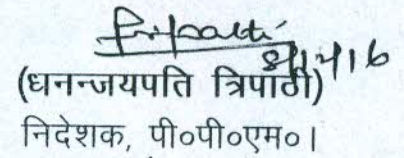 (धनन्जयपति त्रिपाठी)
निदेशक, पी०पी०एम०।